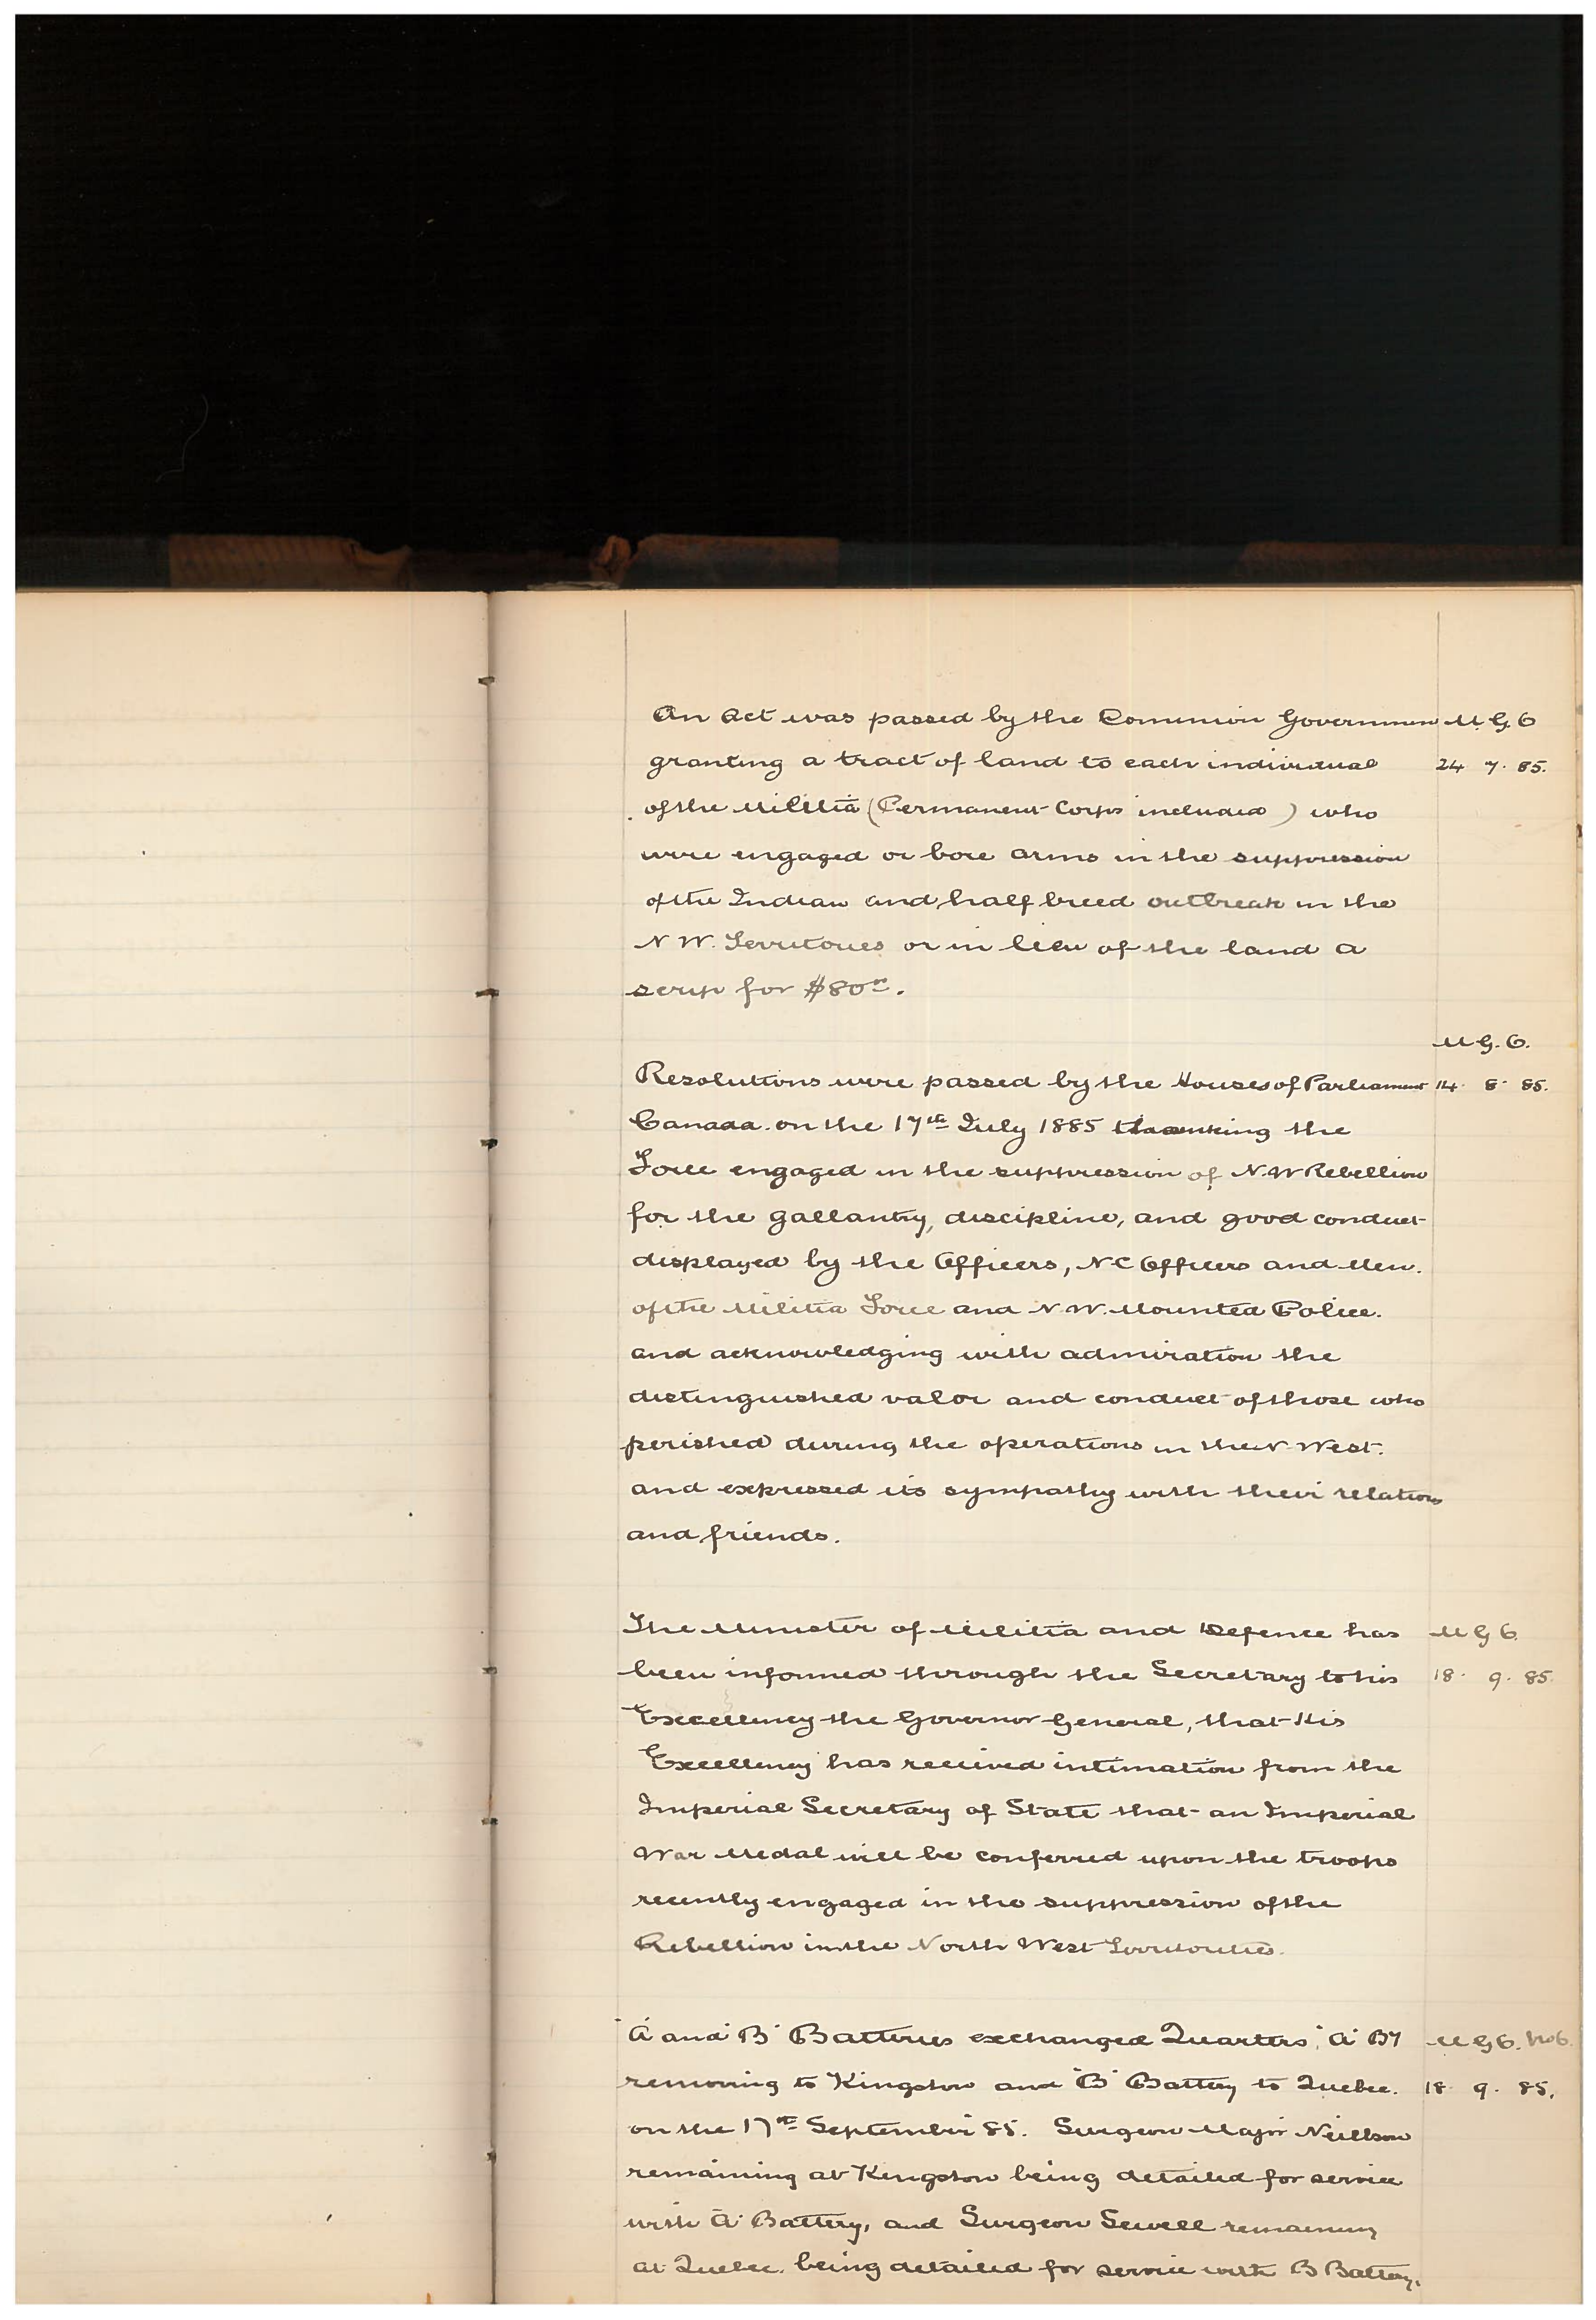 An Act was passed by the Dominion Governmen M.G.O
granting a tract of land to each individual 24 7. 85.
of the Militia (Permanent Corps included) who
were engaged or bore arms in the suppression
of the Indian and half breed outbreak in the
N W. Territories or in lieu of the land a
scrip for $80
M G. O.
Resolutions were passed by the Houses of Parliament 14. 8. 85.
Canada on the 17th July 1885 thanking the
Force engaged in the suppression of N.W Rebellion
for the gallantry, discipline, and good conduct
displayed by the Officers, N C Officers and Men.
of the Militia Force and N.W. Mounted Police.
and acknowledging with admiration the
distinguished valor and conduct of those who
perished during the operations in the N West.
and expressed its sympathy with their relations
and friends.
The Minister of Militia and Defence has M G O.
been informed through the Secretary to his 18. 9. 85.
Excellency the Governor General, that His
Excellency has received intimation from the
Imperial Secretary of State that an Imperial
War Medal will be conferred upon the troops
recently engaged in the suppression of the
Rebellion in the North West Territories.
"A" and "B" Batteries exchanged Quarters, "A" By M G O. No 6.
removing to Kingston and "B" Battery to Quebec. 18 9. 85.
on the 17th September 85. Surgeon Major Neillson
remaining at Kingston being detailed for service
with "A" Battery, and Surgeon Sewell remaining
at Quebec. being detailed for service with B Battery.